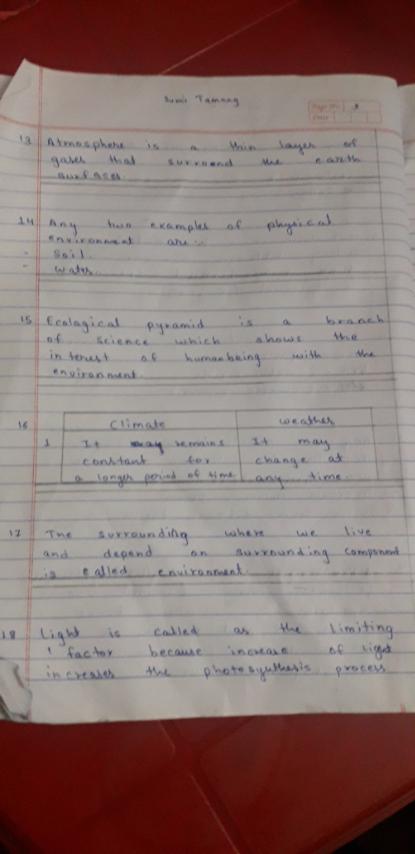 Sumir Tamang
Page No. 3
Date
13 Atmosphere is a thin layer of
gases that surround the earth
surfaces.
14 Any two examples of physical
environment are :-
- Soil.
- Water.
15 Ecological pyramid is a branch
of science which shows the
interest of human being with the
environment.
16 Climate weather
1 It may remains It may
constant for change at
a longer period of time any time.
17 The surrounding where we live
and depend on surrounding component
is called environment.
18 Light is called as the limiting
factor because increase of light
increases the photosynthesis process